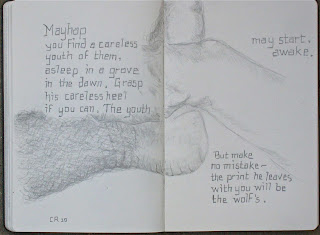 Mayhap
you find a careless
youth of them,
asleep in a grove
in the dawn. Grasp
his careless heel
if you can. The youth
may start.
awake.
But make
no mistake—
the print he leaves
with you will be
the wolf's.